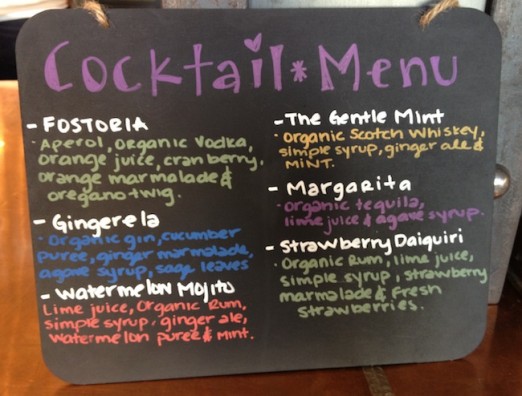 Cocktail * Menu
- FOSTORIA
· Aperol, Organic Vodka,
orange juice, cranberry,
orange marmalade &
oregano twig.
- Gingerela
· Organic gin, cucumber
puree, ginger marmalade,
agave syrup, sage leaves
- Watermelon Mojito
Lime juice, Organic Rum,
simple syrup, ginger ale,
watermelon puree & Mint.
- The Gentle Mint
· Organic Scotch Whiskey,
simple syrup, ginger ale &
MINT.
- Margarita
· Organic tequila,
lime juice & agave syrup.
- Strawberry Daiquiri
· Organic Rum, lime juice,
simple syrup, strawberry
marmalade & Fresh
strawberries.